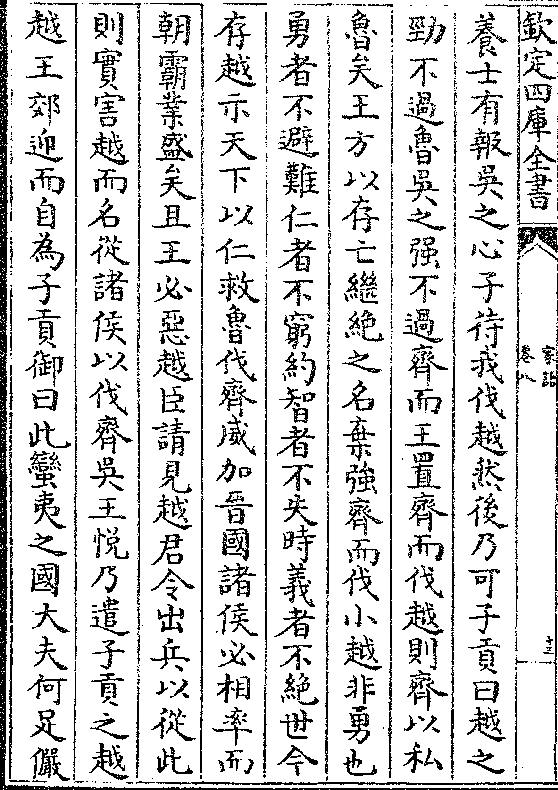 欽定四庫全書
家語
卷八
十三
養士有報吳之心子待我伐越然後乃可子貢曰越之
勁不過魯吳之强不過齊而王置齊而伐越則齊以私
魯矣王方以存亡繼絶之名棄強齊而伐小越非勇也
勇者不避難仁者不窮約智者不失時義者不絶世今
存越示天下以仁救魯伐齊威加晉國諸侯必相率而
朝霸業盛矣且王必惡越臣請見越君令出兵以從此
則實害越而名從諸侯以伐齊吳王悅乃遣子貢之越
越王郊迎而自為子貢御曰此蠻夷之國大夫何足儼